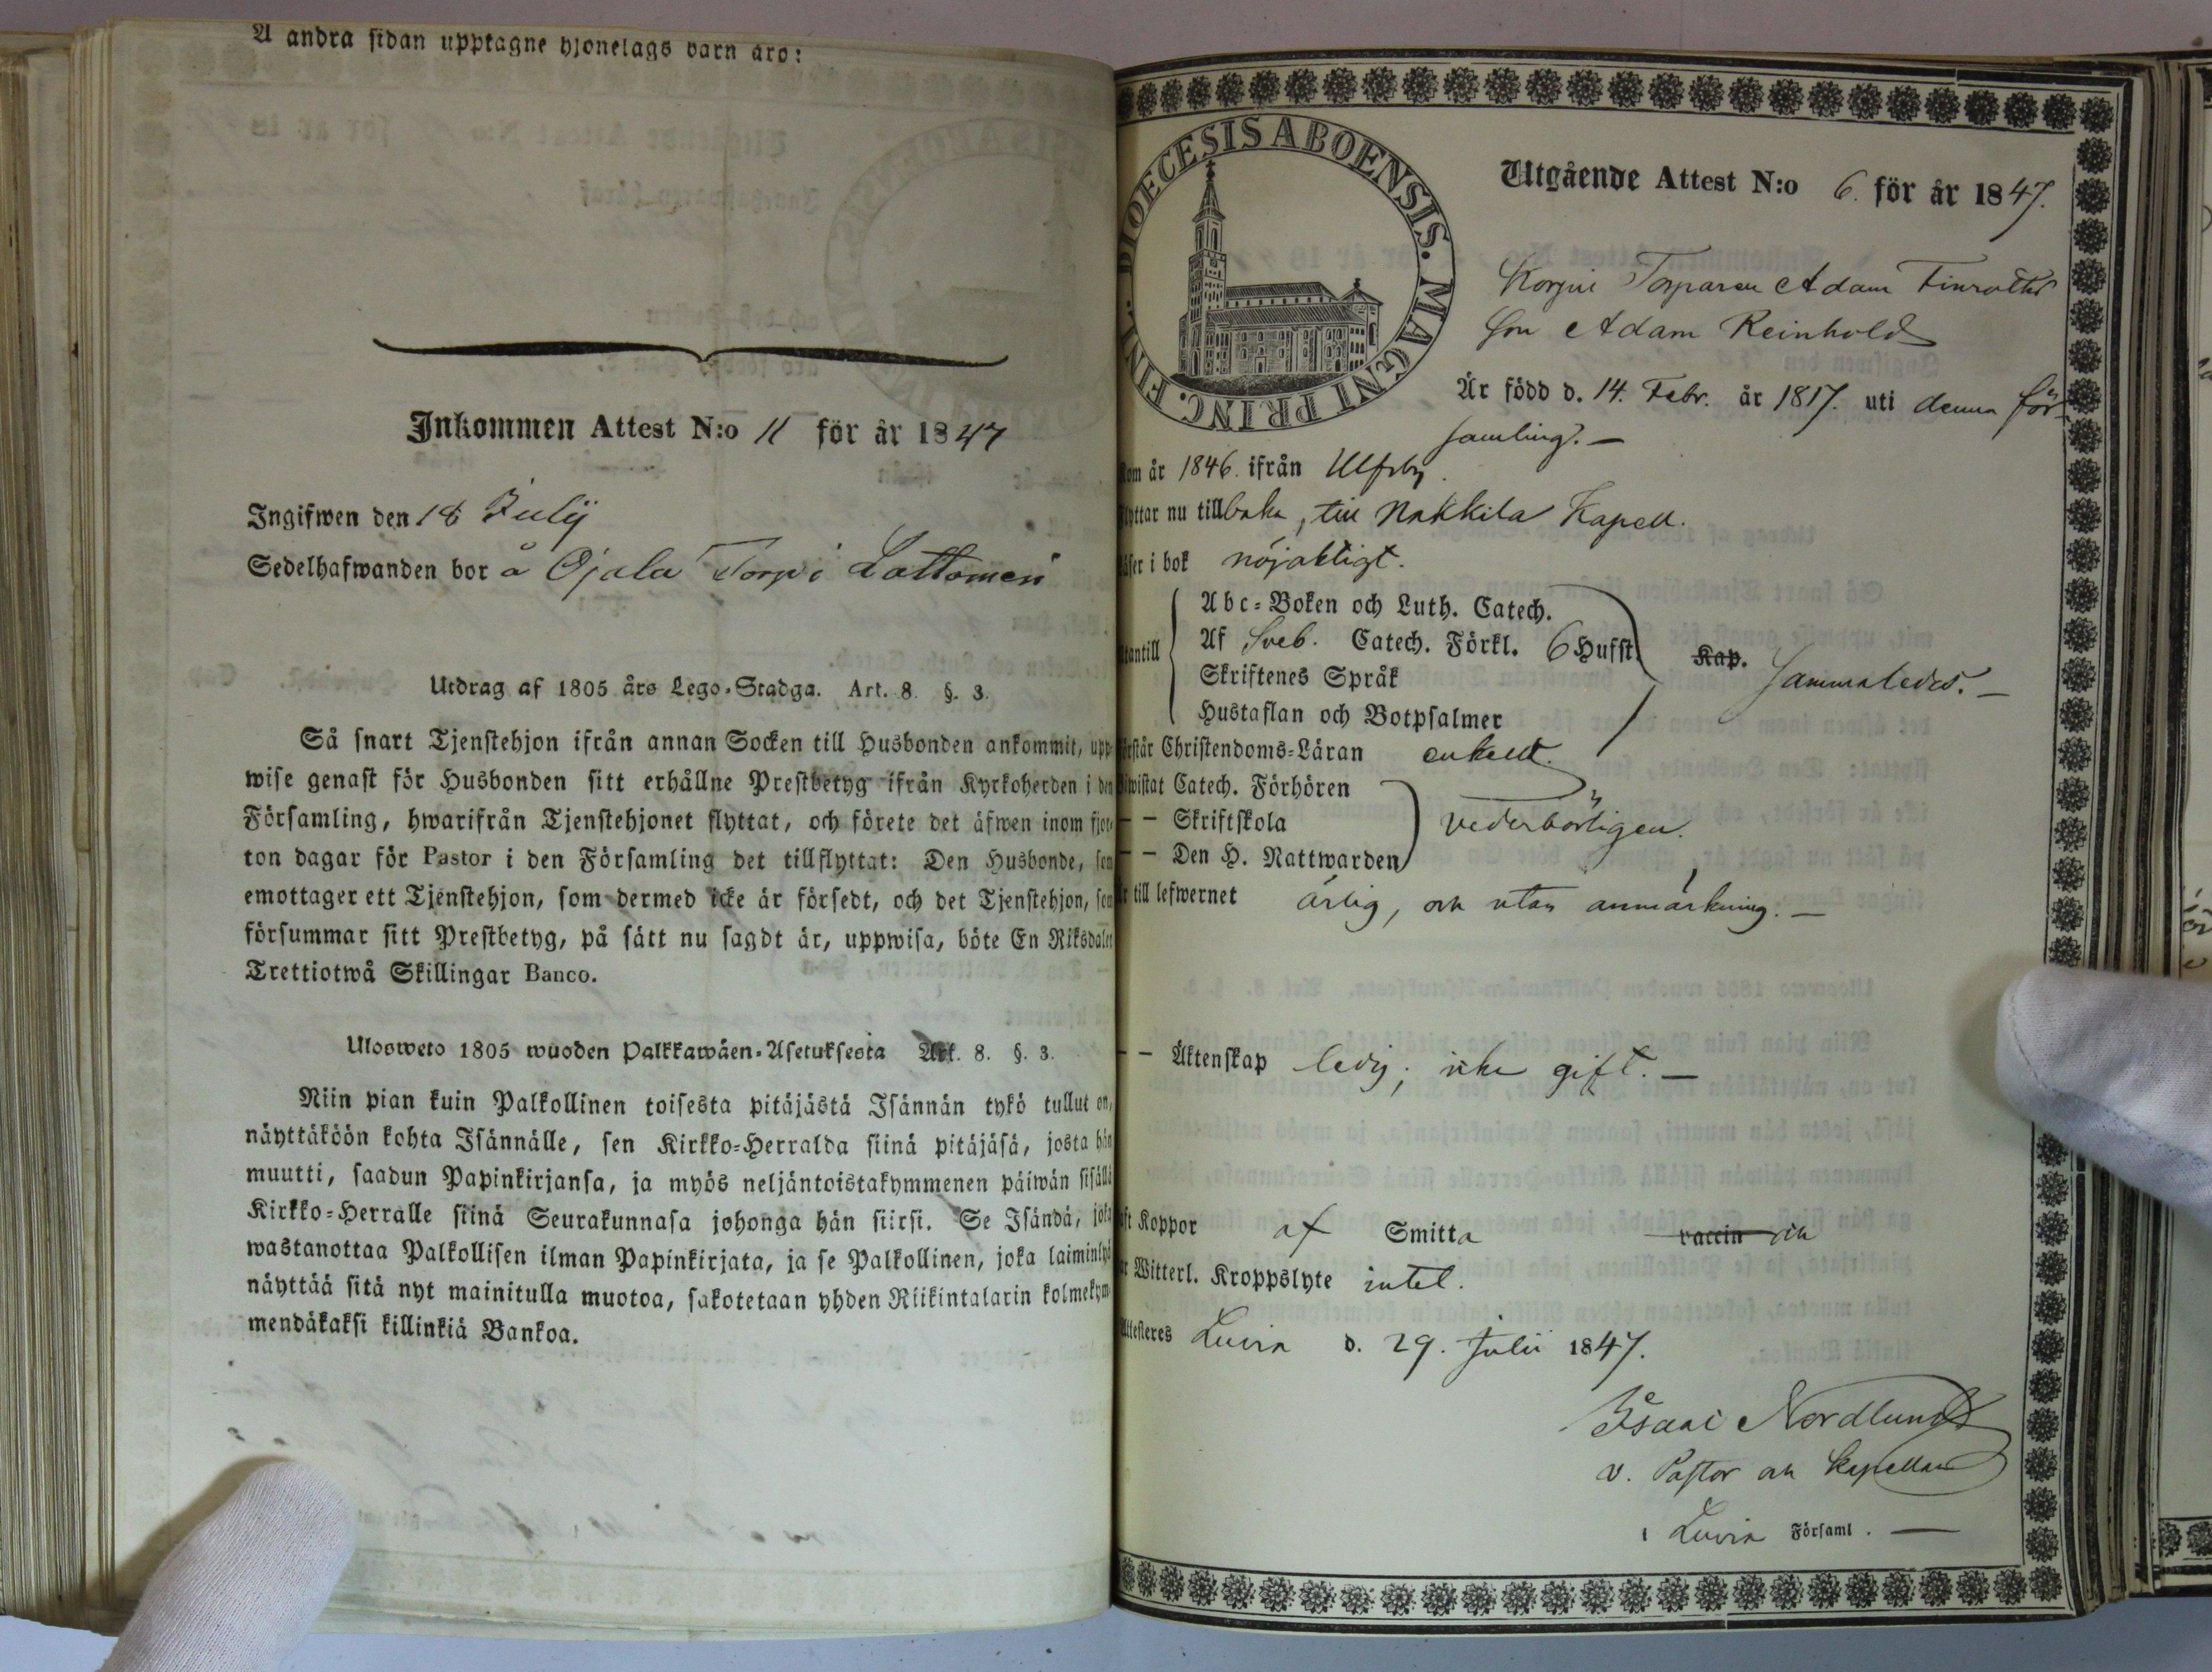 A andra sidan upptagne hjonelags barn äro:
Inkommen Attest N:o 11 för år 1847
Ingifwen den 18 Julij
Sedelhafwanden bor å Ojala Torp i Lattomeri
Utdrag af 1805 års Lego-Stadga. Art. 8. §. 3.
Så snart Tjenstehjon ifrån annan Socken till Husbonden ankommit, upp-
wise genast för Husbonden sitt erhållne Prestbetyg ifrån Kyrkoherden i den
Församling, hwarifrån Tjenstehjonet flyttat, och förete det äfwen inom fjor-
ton dagar för Pastor i den Församling det tillflyttat: Den Husbonde, som
emottager ett Tjenstehjon, som dermed icke är försedt, och det Tjenstehjon, som
försummar sitt Prestbetyg, på sätt nu sagdt är, uppwisa, böte En Riksdaler
Trettiotwå Skillingar Banco.
Ulosweto 1805 wuoden Palkkawäen-Asetuksesta Art. 8. §. 3.
Niin pian kuin Palkollinen toisesta pitäjästä Isännän tykö tullut on,
näyttäköön kohta Isännälle, sen Kirkko-Herralda siinä pitäjäsä, josta hän
muutti, saadun Papinkirjansa, ja myös neljäntoistakymmenen päiwän sisällä
Kirkko-Herralle siinä Seurakunnasa johonga hän siirsi. Se Isändä, joka
wastanottaa Palkollisen ilman Papinkirjata, ja se Palkollinen, joka laiminlyö
näyttää sitä nyt mainitulla muotoa, sakotetaan yhden Riikintalarin kolmekym-
mendäkaksi killinkiä Bankoa.
DIOECESIS ABOENSIS. MAGNI PRINC. FINL.
Utgående Attest N:o 6. för år 1847.
Torparen Adam
Son Adam Reinhold
Är född d. 14. Febr. år 1817. uti denna för-
samling. —
Kom år 1846. ifrån Ulfsby.
Flyttar nu tillbaka, till Nakkila Kapell.
Läser i bok nöjaktigt.
Utantill
Abc-Boken och Luth. Catech.
Af Sveb. Catech. Förkl. 6 Hufst. Kap. Sammaledes. —
Skriftenes Språk
Hustaflan och Botpsalmer
Förstår Christendoms-Läran enkelt.
Biwistat Catech. Förhören
— — Skriftskola vederbörligen.
— — Den H. Nattwarden
Är till lefwernet ärlig, och utan anmärkning. —
— — Äktenskap ledig; icke gift. —
Haft Koppor af Smitta vaccin och
Har Witterl. Kroppslyte intet.
Attesteres Luvia d. 29. Julii 1847.
Isaac Nordlund
v. Pastor och Kapellan
i Luvia Församl. —